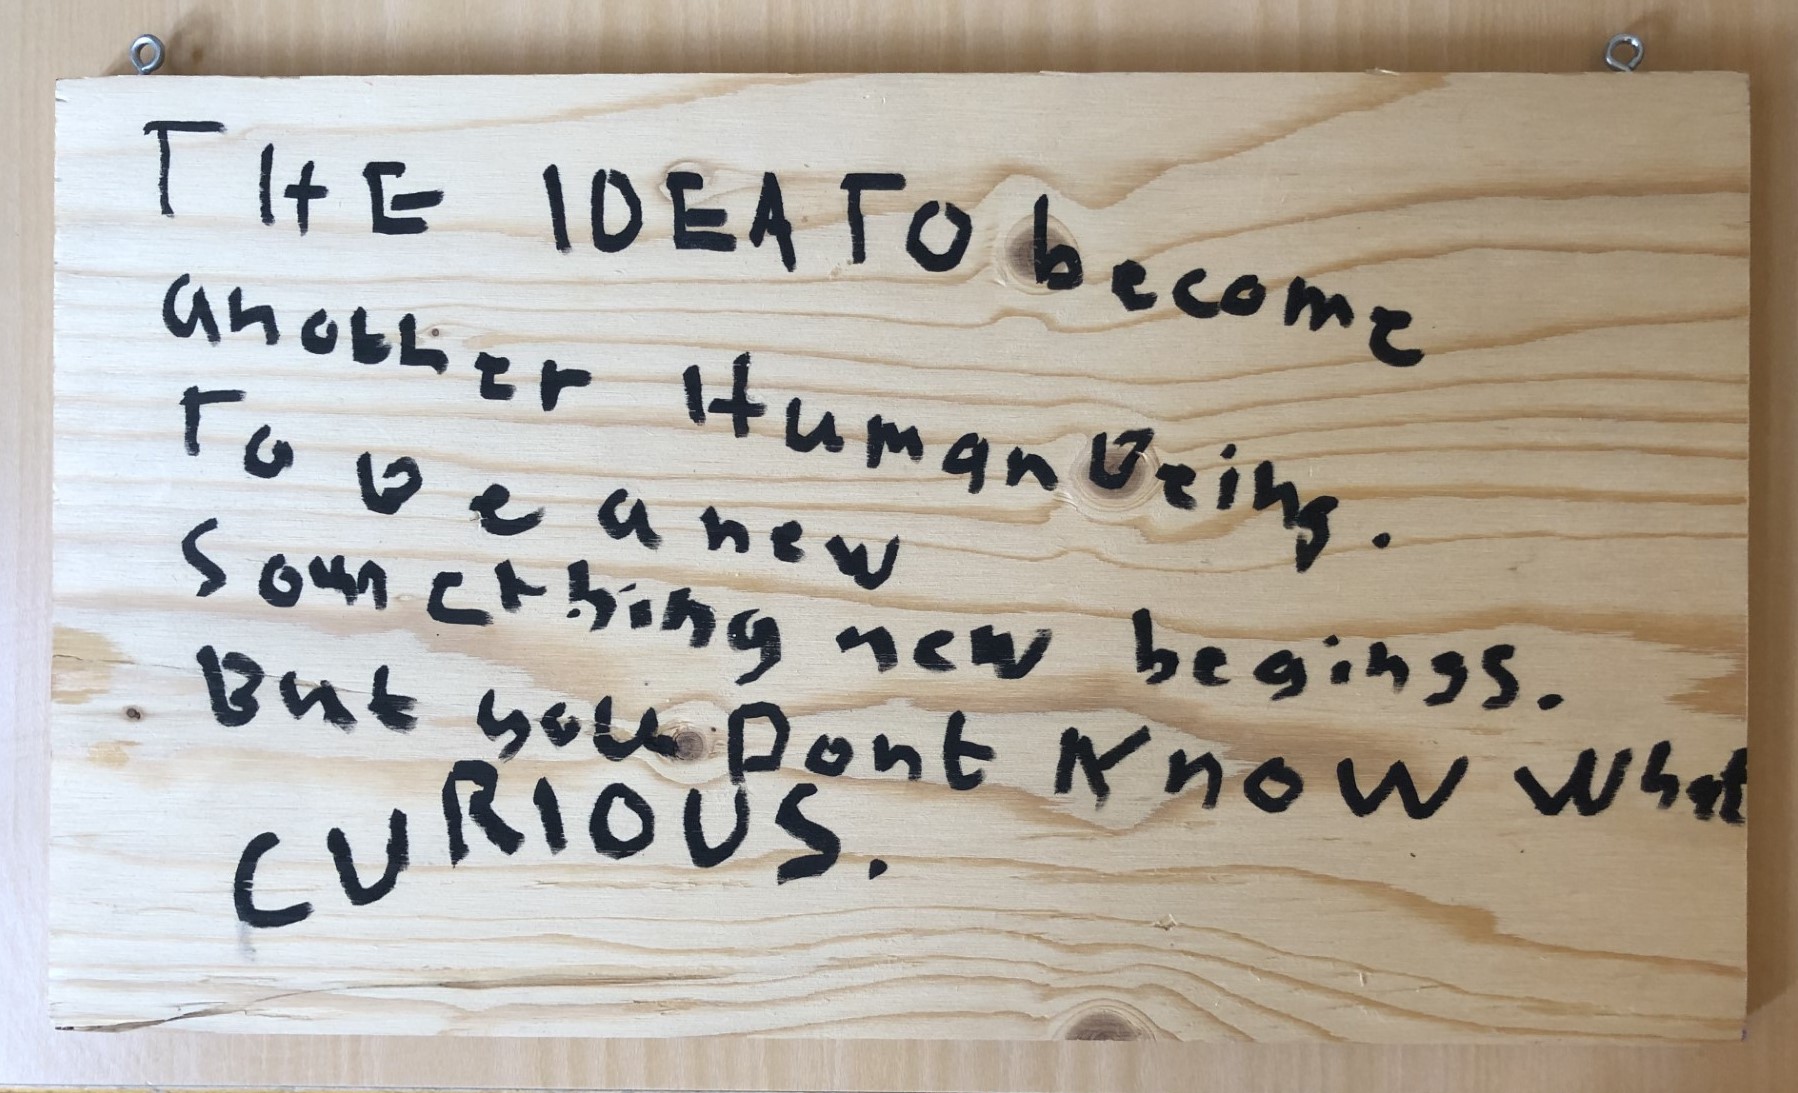 THE IDEA TO become
another Human Being.
To be a new
Something new begings.
But you Dont Know What
CURIOUS.